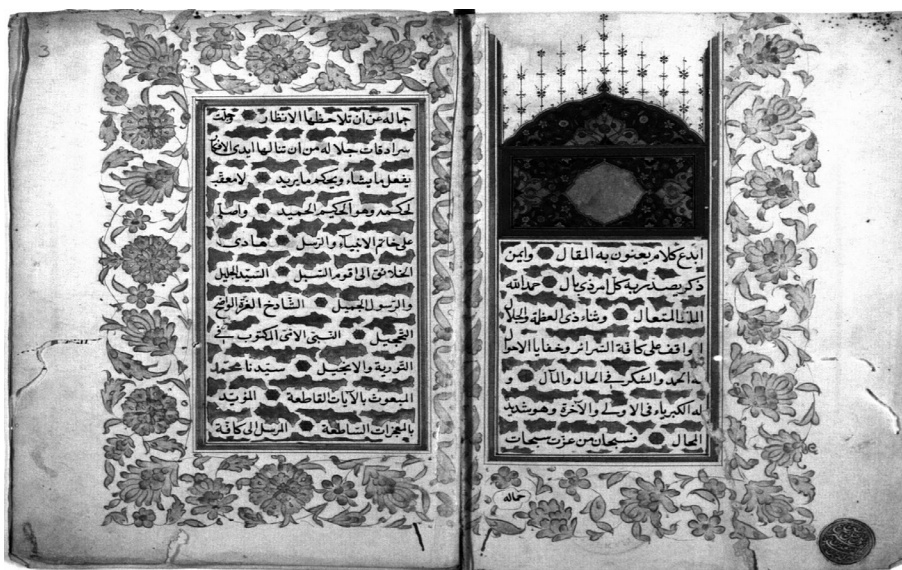 ابدع كلام يعنون به المقال وايمن
ذكر يصدر به كل امر ذي بال حمد الله
الملك المتعال وثناء ذي العظمة والجلال
الواقف على كافة السرائر وخفايا الاحوال
له الحمد والشكر في الحال والمآل و
له الكبرياء في الاولى والآخرة وهو شديد
المحال فسبحان من عزت سبحات
جماله
3
جماله عن ان تلاحظها الانظار وجلت
سرادقات جلاله من ان تنالها ايدي الافكار
يفعل ما يشاء ويحكم ما يريد لا معقب
لحكمه وهو الحكيم الحميد واصلي
على خاتم الانبياء والرسل هادي
الخلائق الى اقوم السبل السيد الجليل
والرسول الجميل الشادخ الغرة الواضح
التحجيل النبي الامي المكتوب في
التورية والانجيل سيدنا محمد
المبعوث بالآيات القاطعة المؤيد
بالمعجزات الساطعة المرسل الى كافة